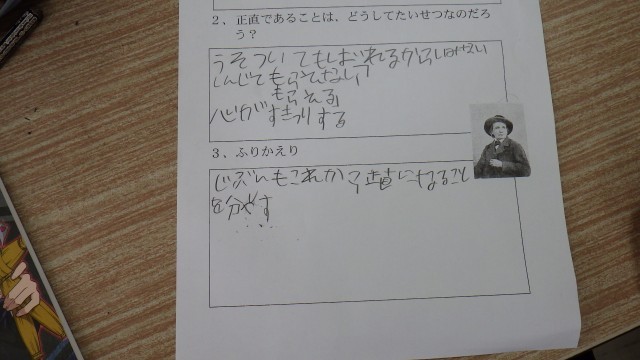 2、正直であることは、どうしてたいせつなのだろ
う？
うそついてもしばれるから
しんじてもらえない
もらえる
心がすっきりする
3、ふりかえり
じぶんもこれから正直になること
を
す